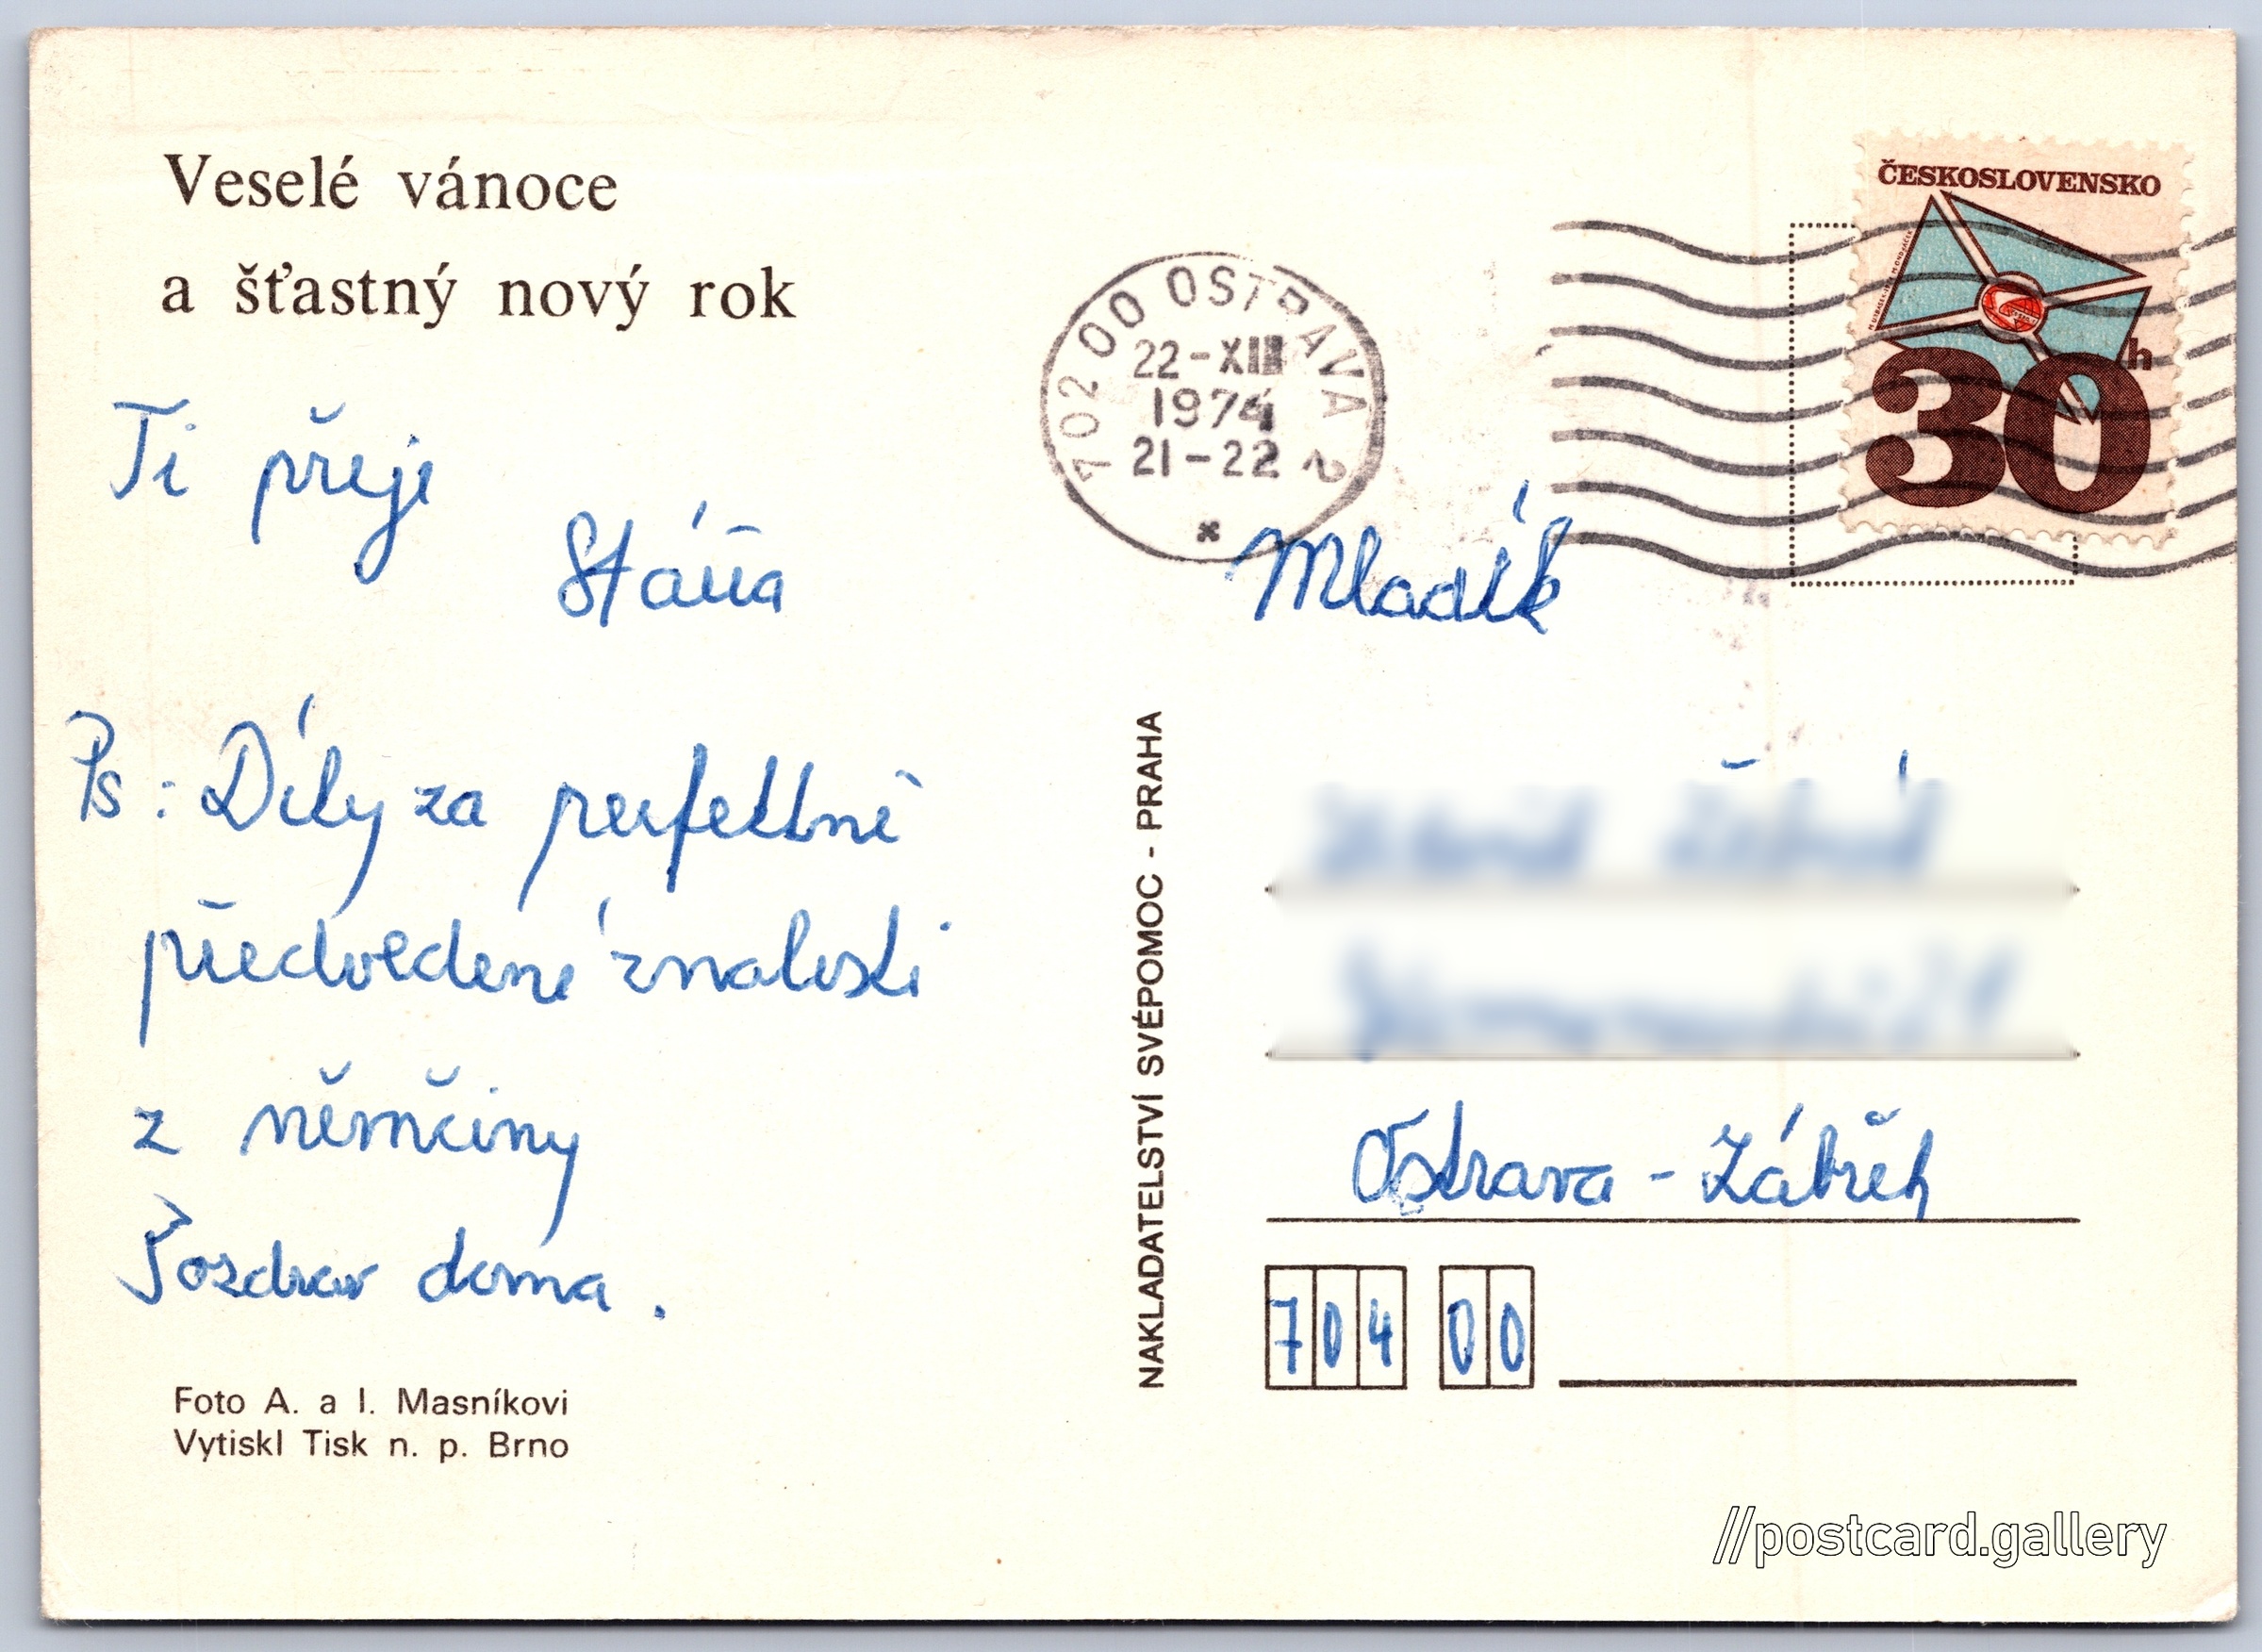 Veselé vánoce
a šťastný nový rok
Ti přeje
Stáňa
Ps: Díky za perfektně
předvedené znalosti
z němčiny
Pozdrav doma.
Foto A. a I. Masníkovi
Vytiskl Tisk n. p. Brno
NAKLADATELSTVÍ SVÉPOMOC - PRAHA
702 00 OSTRAVA 2
22-XII
1974
21-22
ČESKOSLOVENSKO
30 h
Mladík
Ostrava - Zábřeh
704 00
//postcard.gallery